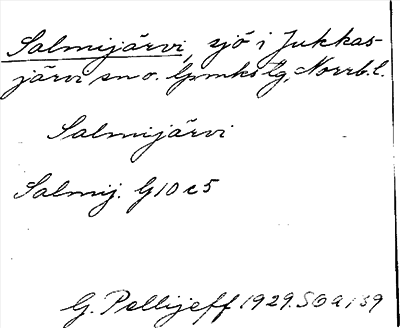 Salmijärvi, sjö i Jukkas-
järvi sn o. lpmks lg, Norrb. l.
Salmijärvi
Salmij. G10c5
G. Pellijeff 1929. SOA 139